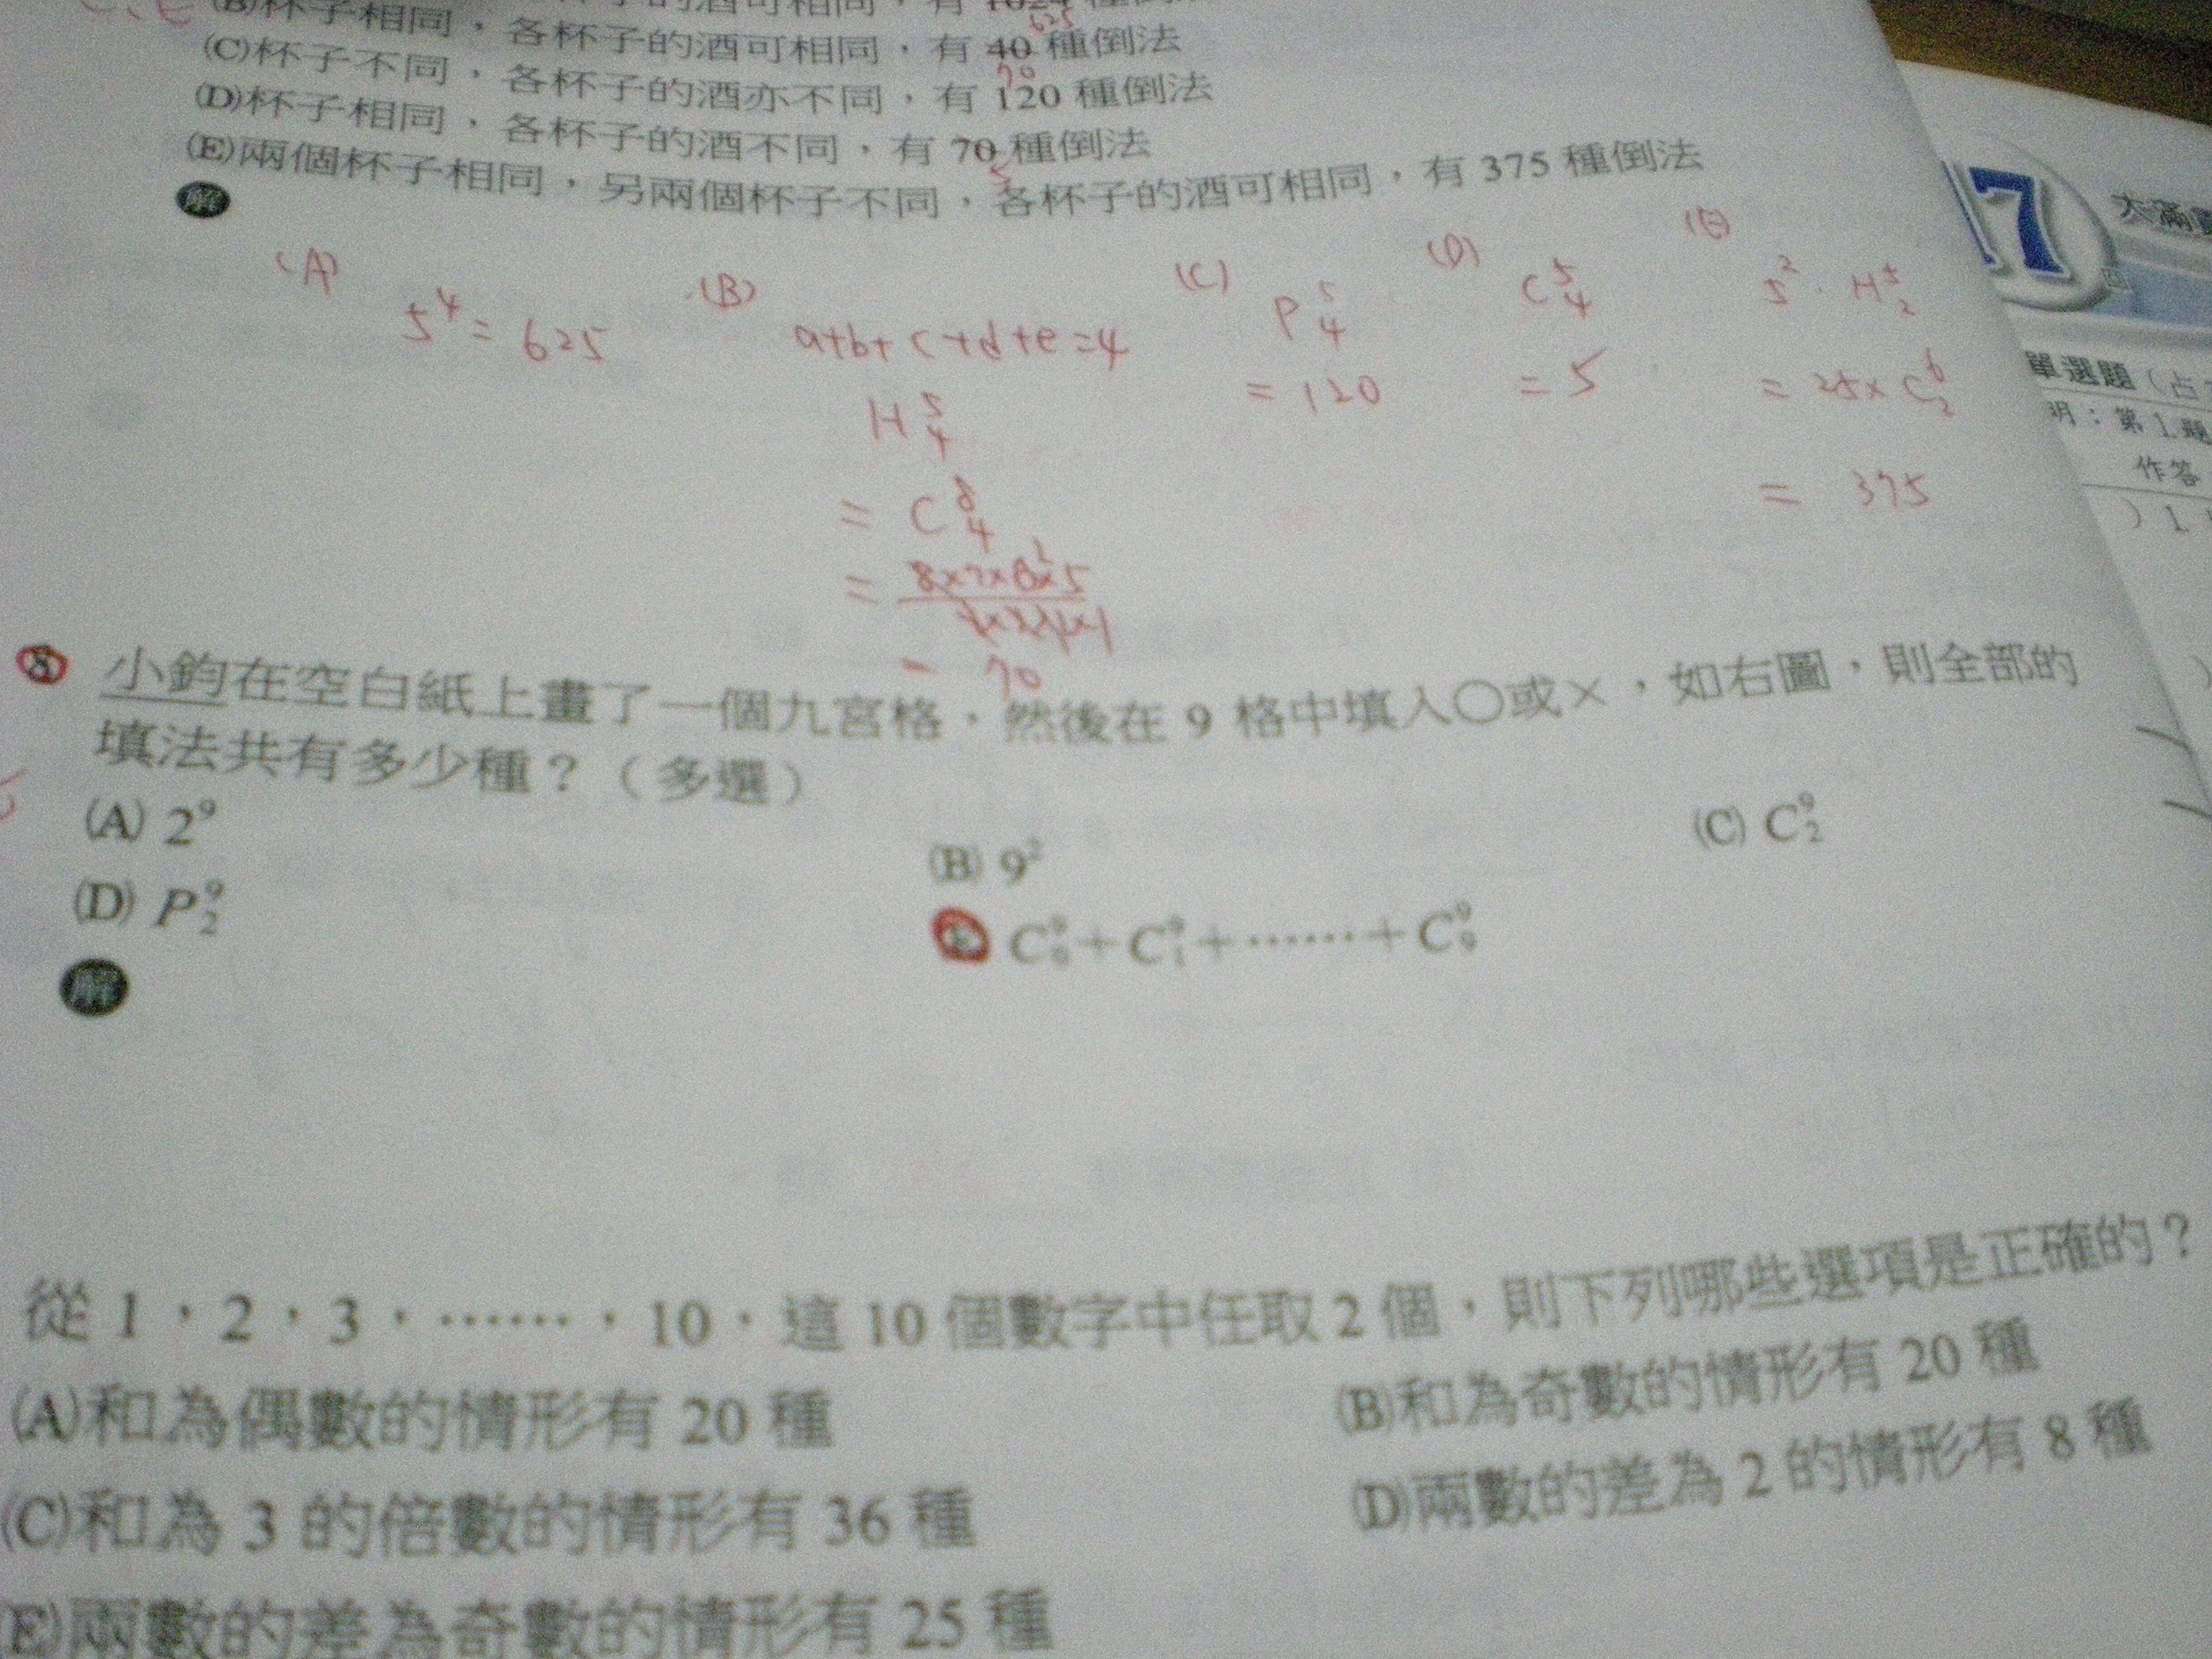 (B)杯子相同，各杯子的酒可相同，有 40 種倒法
625
(C)杯子不同，各杯子的酒亦不同，有 120 種倒法
70
(D)杯子相同，各杯子的酒不同，有 70 種倒法
5
(E)兩個杯子相同，另兩個杯子不同，各杯子的酒可相同，有 375 種倒法
解
(A) 5⁴ = 625
(B) a+b+c+d+e=4
H⁵₄
= C⁸₄
= 8×7×6×5
4×3×2×1
= 70
(C) P⁵₄
= 120
(D) C⁵₄
= 5
(E) 5² · H⁵₂
= 25 × C⁶₂
= 375
小鈞在空白紙上畫了一個九宮格，然後在 9 格中填入○或×，如右圖，則全部的
填法共有多少種？（多選）
(A) 2⁹ (B) 9² (C) C⁹₂
(D) P⁹₂ C⁹₀+C⁹₁+……+C⁹₉
解
從 1，2，3，……，10，這 10 個數字中任取 2 個，則下列哪些選項是正確的？
(A)和為偶數的情形有 20 種 (B)和為奇數的情形有 20 種
(C)和為 3 的倍數的情形有 36 種 (D)兩數的差為 2 的情形有 8 種
(E)兩數的差為奇數的情形有 25 種
7
大滿
單選題（占
明：第 1.題
作答
) 1.